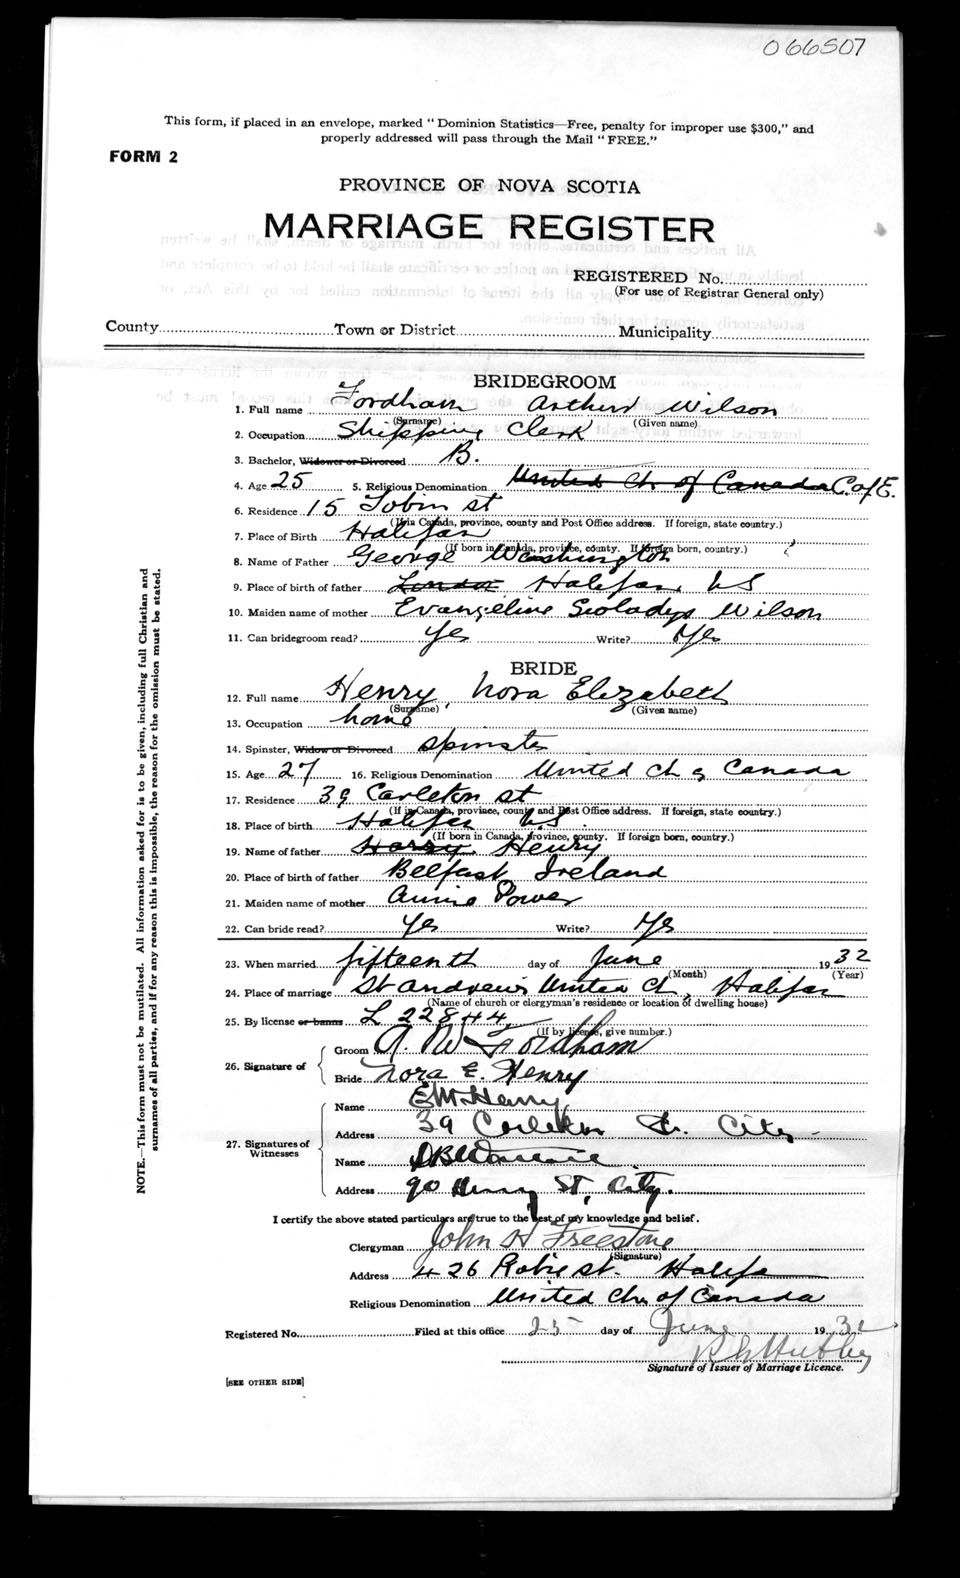 066507
This form, if placed in an envelope, marked "Dominion Statistics—Free, penalty for improper use $300," and
properly addressed will pass through the Mail "FREE."
FORM 2
PROVINCE OF NOVA SCOTIA
MARRIAGE REGISTER
REGISTERED No.
(For use of Registrar General only)
County Town or District Municipality
BRIDEGROOM
1. Full name Fordham Arthur Wilson
(Surname) (Given name)
2. Occupation Shipping Clerk
3. Bachelor, Widower or Divorced B.
4. Age 25 5. Religious Denomination United Ch of Canada C. of E.
6. Residence 15 Tobin st
(If in Canada, province, county and Post Office address. If foreign, state country.)
7. Place of Birth Halifax
(If born in Canada, province, county. If foreign born, country.)
8. Name of Father George Washington
9. Place of birth of father London Halifax, NS
10. Maiden name of mother Evangeline Wilson
11. Can bridegroom read? Yes Write? Yes
BRIDE
12. Full name Henry, Nora Elizabeth
(Surname) (Given name)
13. Occupation home
14. Spinster, Widow or Divorced spinster
15. Age 27 16. Religious Denomination United Ch of Canada
17. Residence 39 Carleton st
(If in Canada, province, county and Post Office address. If foreign, state country.)
18. Place of birth Halifax N.S.
(If born in Canada, province, county. If foreign born, country.)
19. Name of father Harry Henry
20. Place of birth of father Belfast, Ireland
21. Maiden name of mother Annie Power
22. Can bride read? Yes Write? Yes
23. When married fifteenth day of June 1932
(Month) (Year)
24. Place of marriage St Andrew's United Ch, Halifax
(Name of church or clergyman's residence or location of dwelling house)
25. By license or banns L 22844
(If by license, give number.)
26. Signature of
Groom A. W. Fordham
Bride Nora E. Henry
27. Signatures of Witnesses
Name E M Henry
Address 39 Carleton St. City
Name
Address 90 Henry St, City.
I certify the above stated particulars are true to the best of my knowledge and belief.
Clergyman John H Freestone
(Signature)
Address 426 Robie st. Halifax
Religious Denomination United Ch. of Canada
Registered No. Filed at this office 25 day of June 1932
Signature of Issuer of Marriage Licence.
[SEE OTHER SIDE]
NOTE.—This form must not be mutilated. All information asked for is to be given, including full Christian and
surnames of all parties, and if for any reason this is impossible, the reason for the omission must be stated.